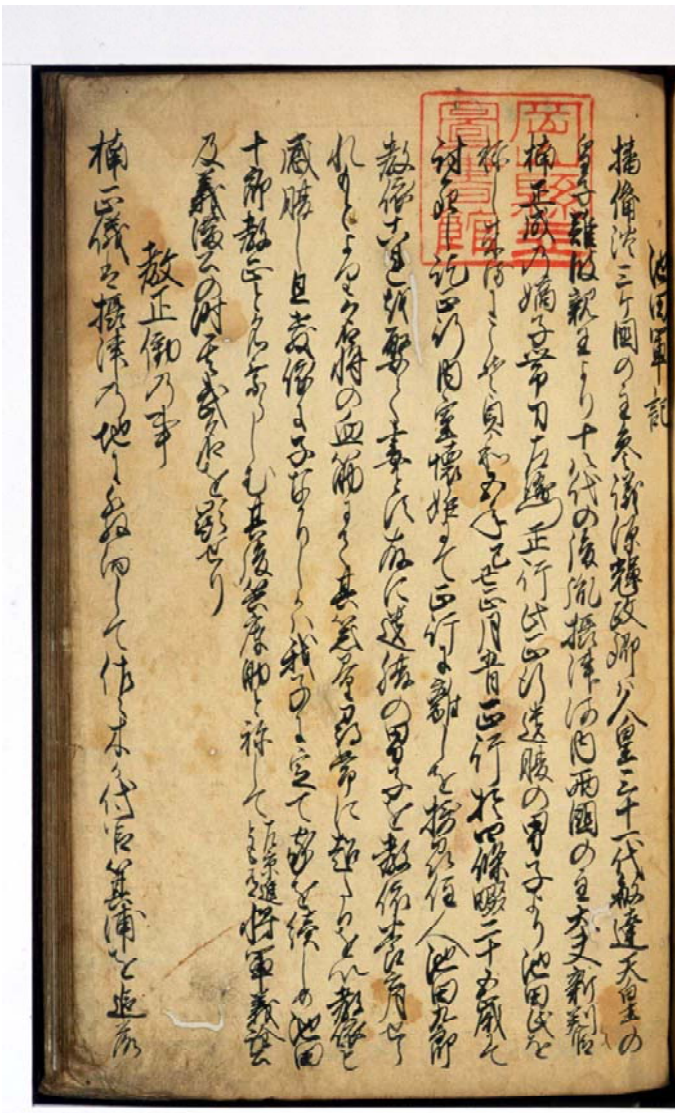 池田軍記
播備淡三ケ国の主参議源輝政卿ハ人皇三十一代敏達天皇の
皇子難波親王より十八代の後胤摂津河内両国の主大夫判官
楠正成の嫡子帯刀左衛門正行此正行遺腹の男子より池田氏を
称し 貞和五年己丑正月五日正行於四條畷二十五歳て
討死し 正行内室懐妊にて正行に離しを 住人池田九郎
教依 妻とす 遺腹の男子を教依養育せり
名将の血筋にて其器量尋常に超たるを以教依も
感 し且教依に子なかりしかハ我子に定て家を続しめ池田
十郎教正と名乗らしむ其後兵庫助と称して 将軍義詮公
及義満公の時に武名を顕せり
教正働の事
楠正儀は摂津の地に 佐々木か代官箕浦を追落
岡山縣立
圖書館